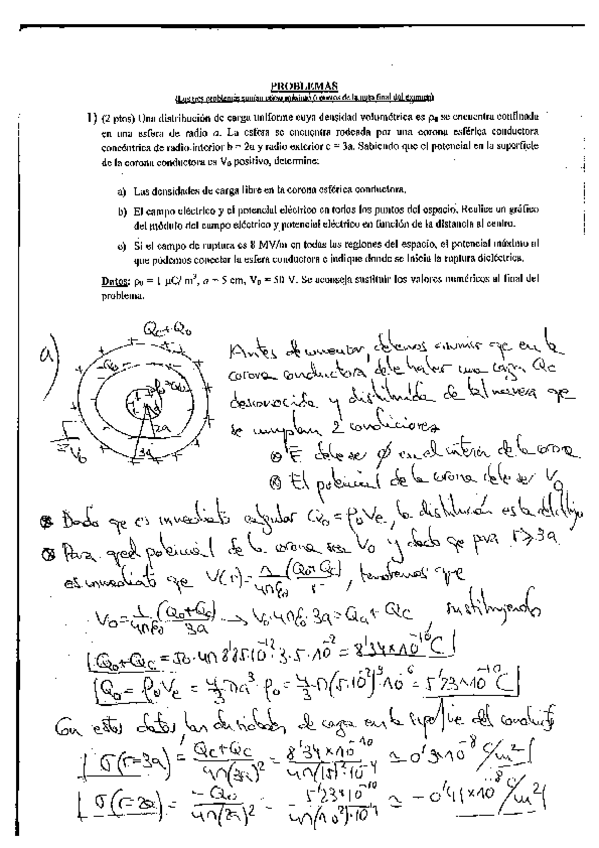 PROBLEMAS
(Los tres problemas suman como máximo 6 puntos de la nota final del examen)
1) (2 ptos) Una distribución de carga uniforme cuya densidad volumétrica es ρ₀ se encuentra confinada
en una esfera de radio a. La esfera se encuentra rodeada por una corona esférica conductora
concéntrica de radio interior b = 2a y radio exterior c = 3a. Sabiendo que el potencial en la superficie
de la corona conductora es V₀ positivo, determine:
a) Las densidades de carga libre en la corona esférica conductora.
b) El campo eléctrico y el potencial eléctrico en todos los puntos del espacio. Realice un gráfico
del módulo del campo eléctrico y potencial eléctrico en función de la distancia al centro.
c) Si el campo de ruptura es 8 MV/m en todas las regiones del espacio, el potencial máximo al
que podemos conectar la esfera conductora e indique donde se inicia la ruptura dieléctrica.
Datos: ρ₀ = 1 μC/ m³, a = 5 cm, V₀ = 50 V. Se aconseja sustituir los valores numéricos al final del
problema.
a)
Qc+Q₀
-Q₀
2a
3a
V₀
Antes de comenzar, debemos asumir que en la
corona conductora debe haber una carga Qc
desconocida y distribuida de tal manera que
se cumplan 2 condiciones
⊗ E debe ser 0 en el interior de la corona
⊗ El potencial de la corona debe ser V₀
⊗ Dado que es inmediato calcular Q₀ = ρ₀Ve, la distribución es la del dibujo
⊗ Para que el potencial de la corona sea V₀ y dado que para r≥3a
es inmediato que V(r) = 1/4πε₀ (Q₀+Qc)/r, tendremos que
V₀ = 1/4πε₀ (Q₀+Qc)/3a → V₀·4πε₀·3a = Q₀+Qc, sustituyendo
Q₀+Qc = 50·4π·8'85·10⁻¹²·3·5·10⁻² = 8'34×10⁻¹⁰ C
Q₀ = ρ₀Ve = 4/3 πa³·ρ₀ = 4/3·π(5·10⁻²)³·10⁻⁶ = 5'23×10⁻¹⁰ C
Con estos datos las densidades de carga en la superficie del conductor
σ(r=3a) = Q₀+Qc/4π(3a)² = 8'34×10⁻¹⁰/4π(15)²·10⁻⁴ ≃ 0'3×10⁻⁸ C/m²
σ(r=2a) = -Q₀/4π(2a)² = - 5'23×10⁻¹⁰/4π(10²)·10⁻⁴ ≃ -0'41×10⁻⁸ C/m²